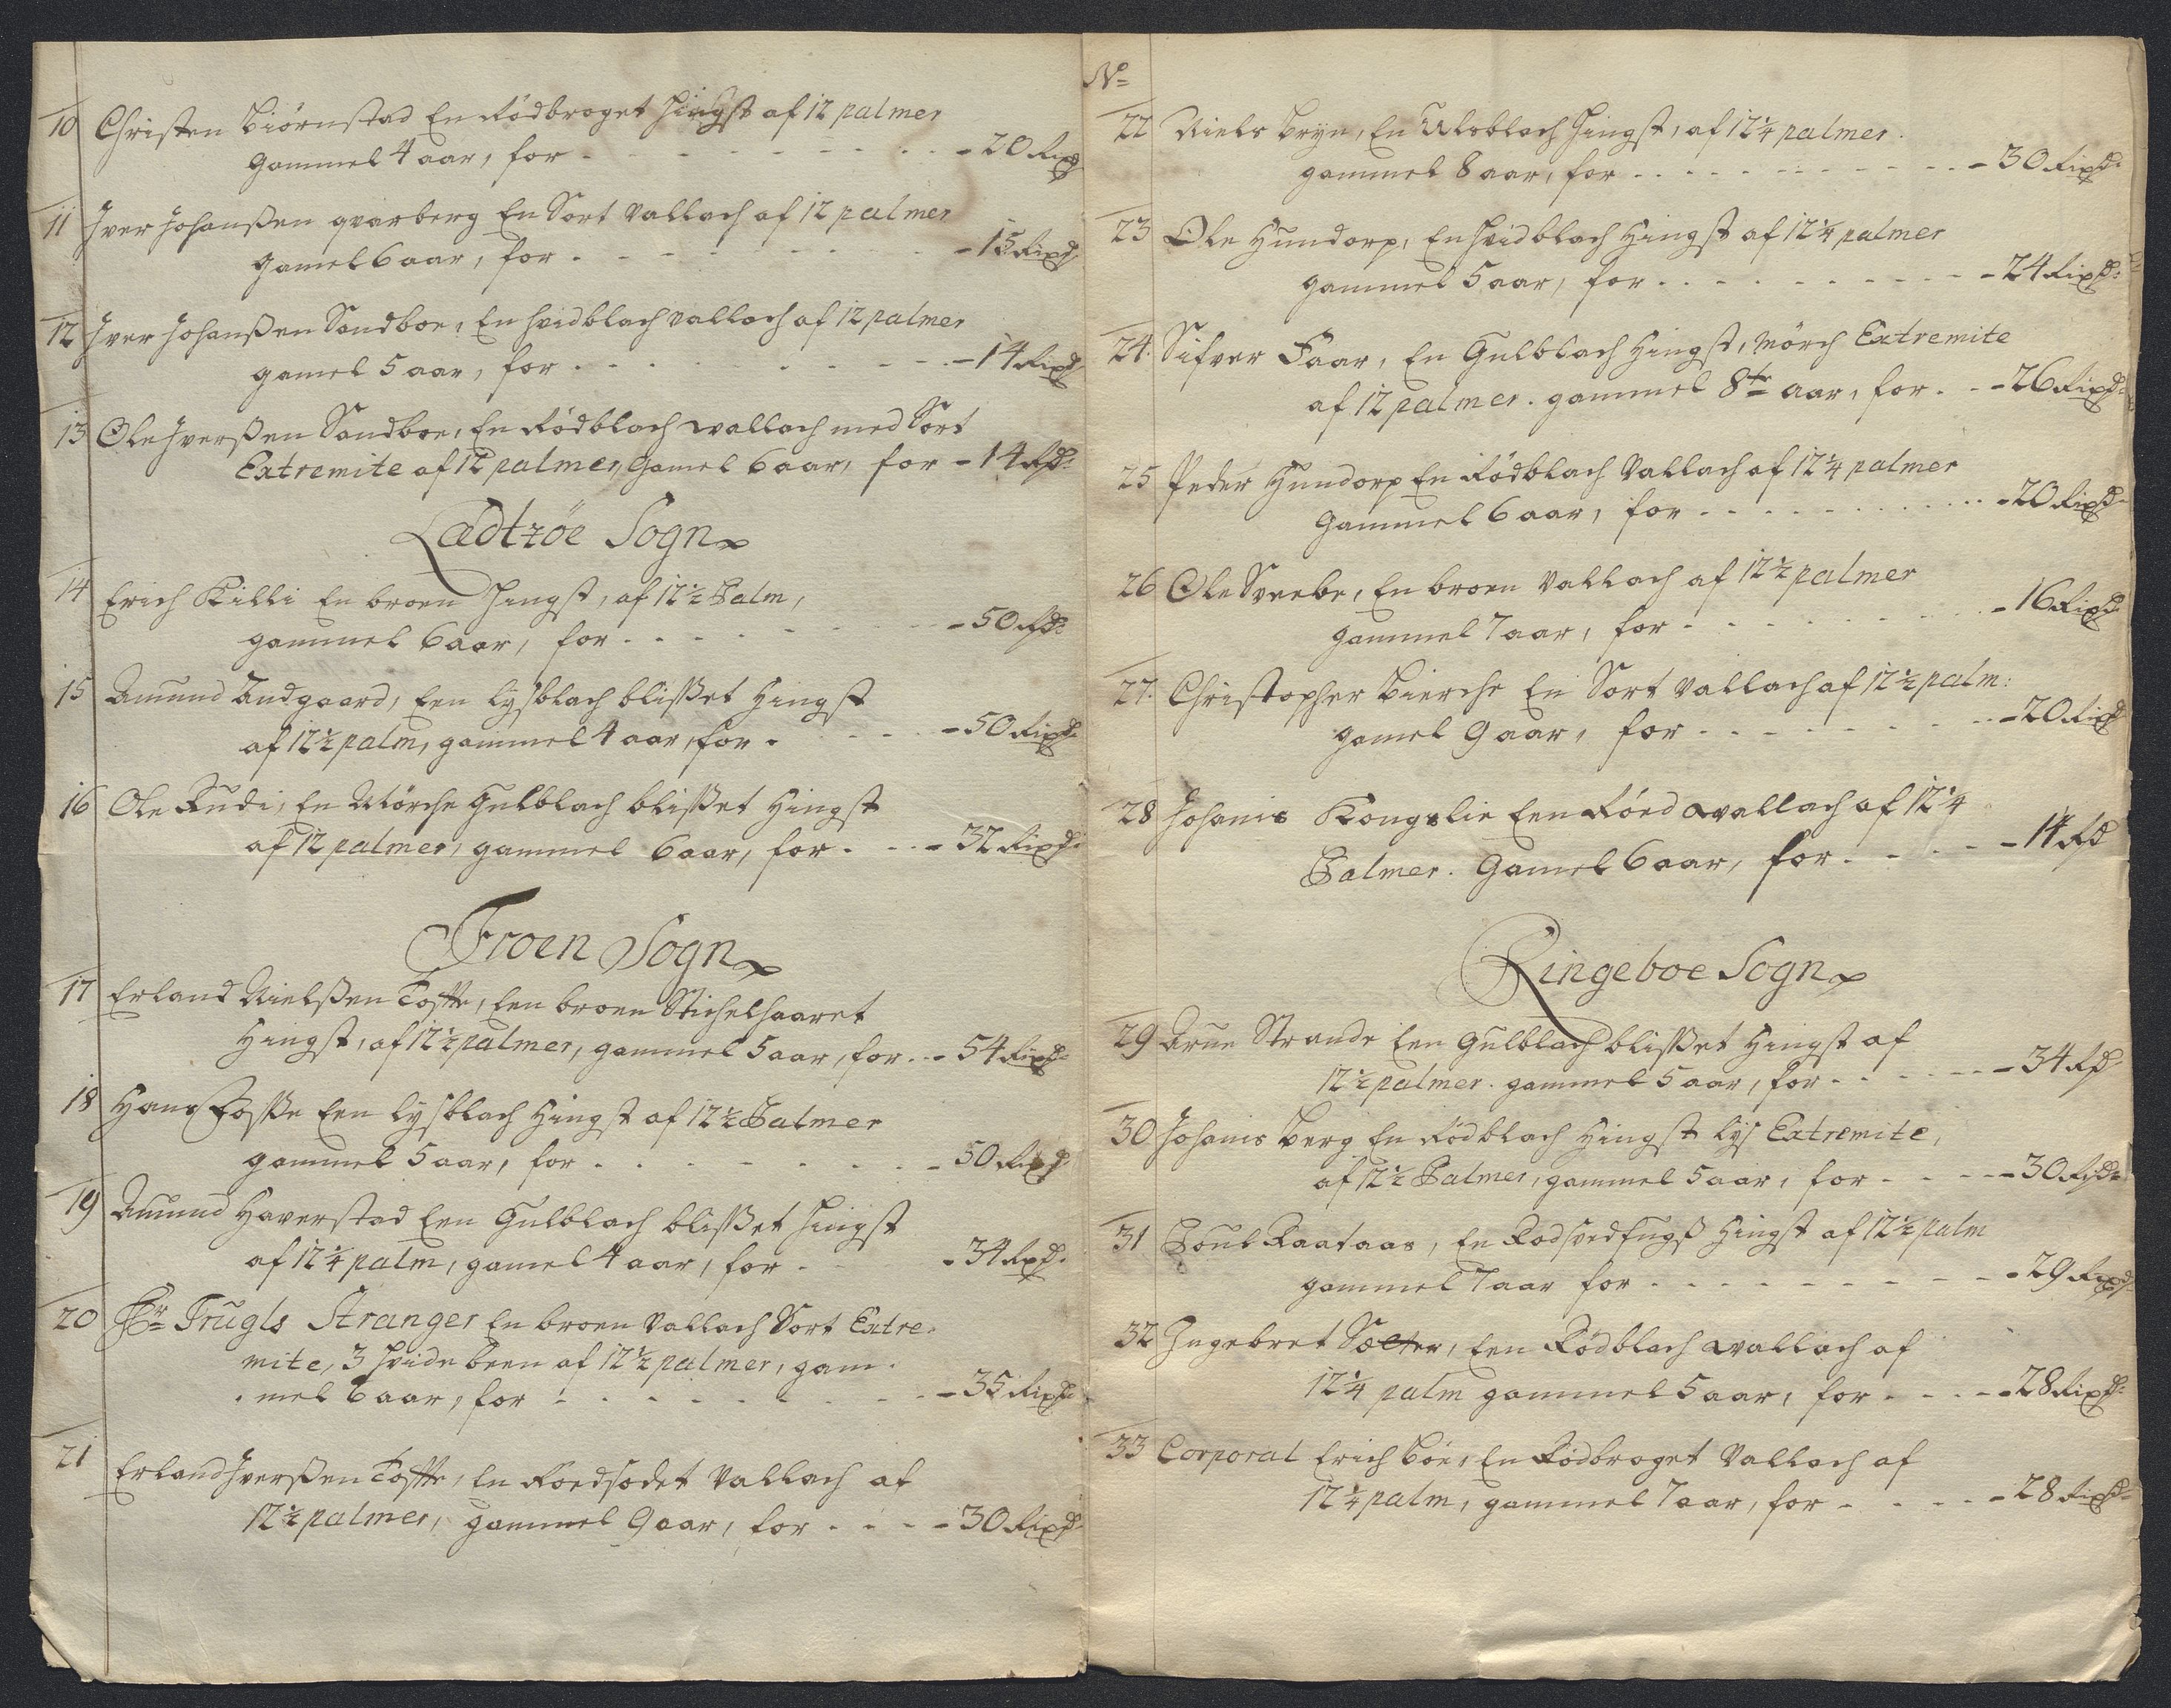 10 Christen Biørnstad En Rødbroget Hingst af 12 palmer
gammel 4 aar, for - 20 Rixd
11 Iver Johanßen qvarberg En Sort Vallach af 12 palmer
gamel 6 aar, for - 15 Rixd
12 Iver Johanßen Sandboe, En hvidblach vallach af 12 palmer
gamel 5 aar, for - 14 Rixd
13 Ole Iverßen Sandboe, En Rødblach wallach med Sort
Extremite af 12 palmer, Gamel 6 aar, for - 14 Rd:
Lædtzöe Sogn
14 Erich Killi En broen Hingst, af 12½ Palm,
gammel 6 aar, for - 50 Rd:
15 Amund Andgaard, Een lysblach blisßet Hingst
af 12½ palm, gammel 4 aar, for - 50 Rixd:
16 Ole Rudi, En Mörche Gulblach blisßet Hingst
af 12 palmer, gammel 6 aar, for - 32 Rixd:
Froen Sogn
17 Erland Nielßen Tofte, Een broen Stichelhaaret
Hingst, af 12½ palmer, gammel 5 aar, for - 54 Rixd:
18 Hans Foße Een lysblach Hingst af 12½ Palmer
gammel 5 aar, for - 50 Rixd
19 Amund Haverstad Een Gulblach blisßet Hingst
af 12¼ palm, gamel 4 aar, for - 34 Rixd:
20 Hr Trugls Stranger En broen Vallach Sort Extre-
mite, 3 hvide been af 12½ palmer, gam-
mel 6 aar, for - 35 Rixd:
21 Erland Iverßen Tofte, En Roedsodet Vallach af
12½ palmer, gammel 9 aar, for - 30 Rixd:
No
22 Niels Bryn, En Ulsblach Hingst, af 12¼ palmer.
gammel 8 aar, for - 30 Rixd:
23 Ole Hundorp, En hvidblach Hingst af 12¼ palmer
gammel 5 aar, for - 24 Rixd:
24. Sifver Faar, En Gulblach Hingst, mörch Extremite
af 12 palmer. gammel 8te aar, for - 26 Rixd:
25 Peder Hundorp En Rödblach Vallach af 12¼ palmer
Gammel 6 aar, for - 20 Rixd:
26 Ole Sveebe, En broen Vallach af 12½ palmer
gammel 7 aar, for - 16 Rixd
27. Christopher Bierche En Sort Vallach af 12½ palm:
gamel 9 aar, for - 20 Rixd
28 Johanis Kongslie Een Röed wallach af 12¼
Palmer. Gamel 6 aar, for - 14 Rd
Ringeboe Sogn
29 Arne Strande Een Gulblach blisßet Hingst af
12½ palmer. gammel 5 aar, for - 34 Rd:
30 Johanis Berg En Rödblach Hingst lys Extremite,
af 12½ Palmer, gammel 5 aar, for - 30 Rd:
31 Poul Raataas, En Hingst af 12½ palm
gammel 7 aar for - 29 Rixd:
32 Ingebret Sætter, Een Rödblach wallach af
12¼ palm gammel 5 aar, for - 28 Rixd:
33 Corporal Erich Böe, En Rödbroget Vallach af
12¼ palm, gammel 7 aar, for - 28 Rixd: